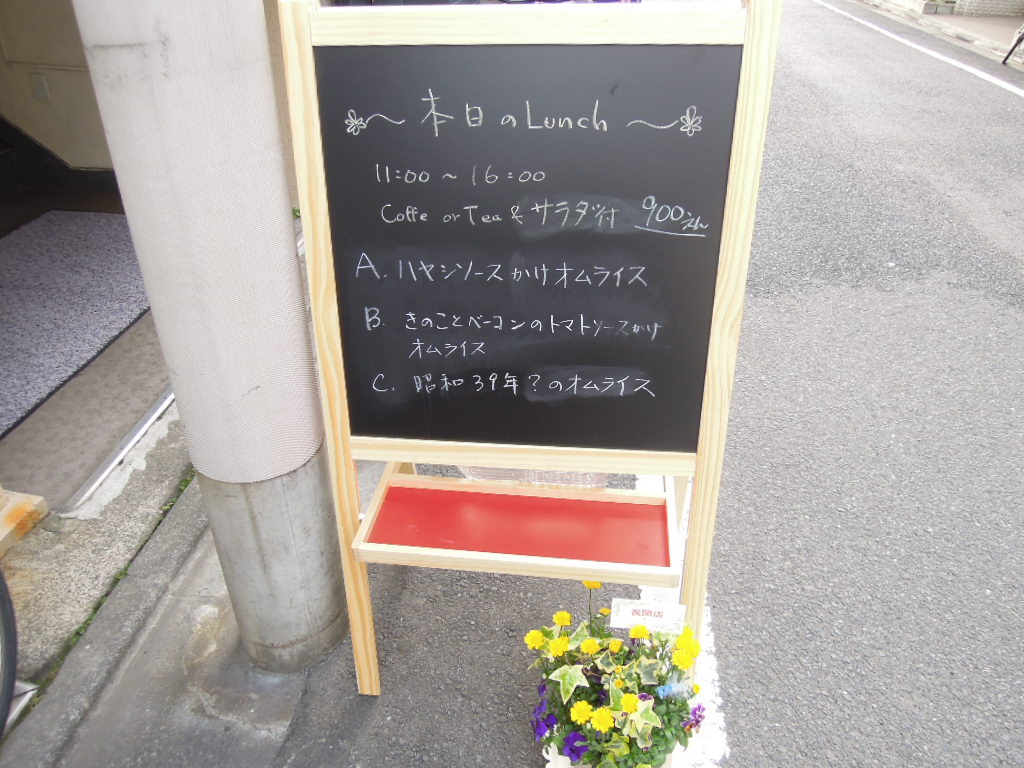 本日のLunch
11:00～16:00
Coffe or Tea & サラダ付 900えん
A. ハヤシソースかけオムライス
B. きのことベーコンのトマトソースかけ
オムライス
C. 昭和39年?のオムライス
祝開店